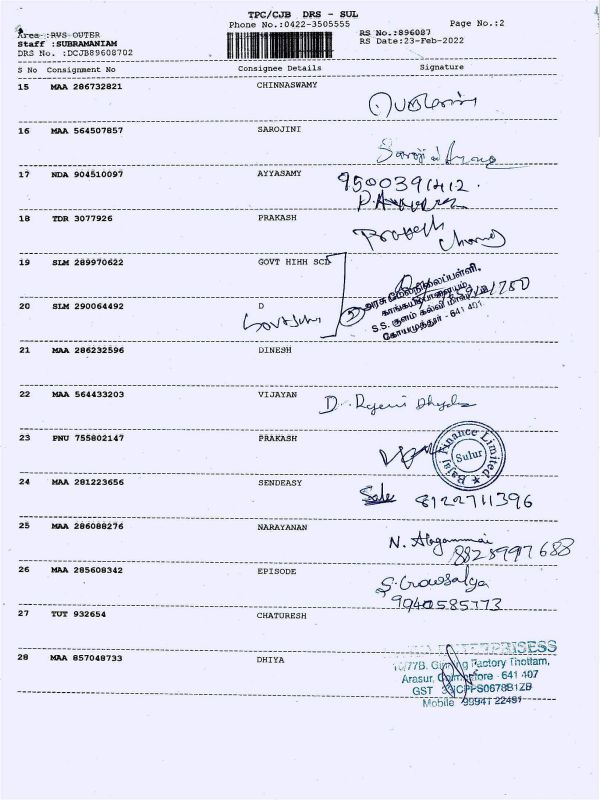 TPC/CJB DRS - SUL
Phone No.:0422-3505555
Page No.:2
Area :RVS OUTER
Staff :SUBRAMANIAM
DRS No. :DCJB89608702
RS No.:896087
RS Date:23-Feb-2022
S No Consignment No Consignee Details Signature
15 MAA 286732821 CHINNASWAMY
16 MAA 564507857 SAROJINI
17 NDA 904510097 AYYASAMY
9500391412.
18 TDR 3077926 PRAKASH
Prakash
19 SLM 289970622 GOVT HIHH SCH
அரசு மேல்நிலைப்பள்ளி,
காங்கயம்பாளையம்,
S.S. குளம் கல்வி மாவட்டம்
கோயமுத்தூர் - 641 401
20 SLM 290064492 D
21 MAA 286232596 DINESH
22 MAA 564433203 VIJAYAN
23 PNU 755802147 PRAKASH
Bajaj Finance Limited
Sulur
24 MAA 281223656 SENDEASY
8122711396
25 MAA 286088276 NARAYANAN
N. Alagammai
8825997688
26 MAA 285608342 EPISODE
S. Gowsalya
9940585773
27 TUT 932654 CHATURESH
28 MAA 857048733 DHIYA
10/77B, Ginning Factory Thottam,
Arasur, Coimbatore - 641 407
GST
Mobile 99941 22491